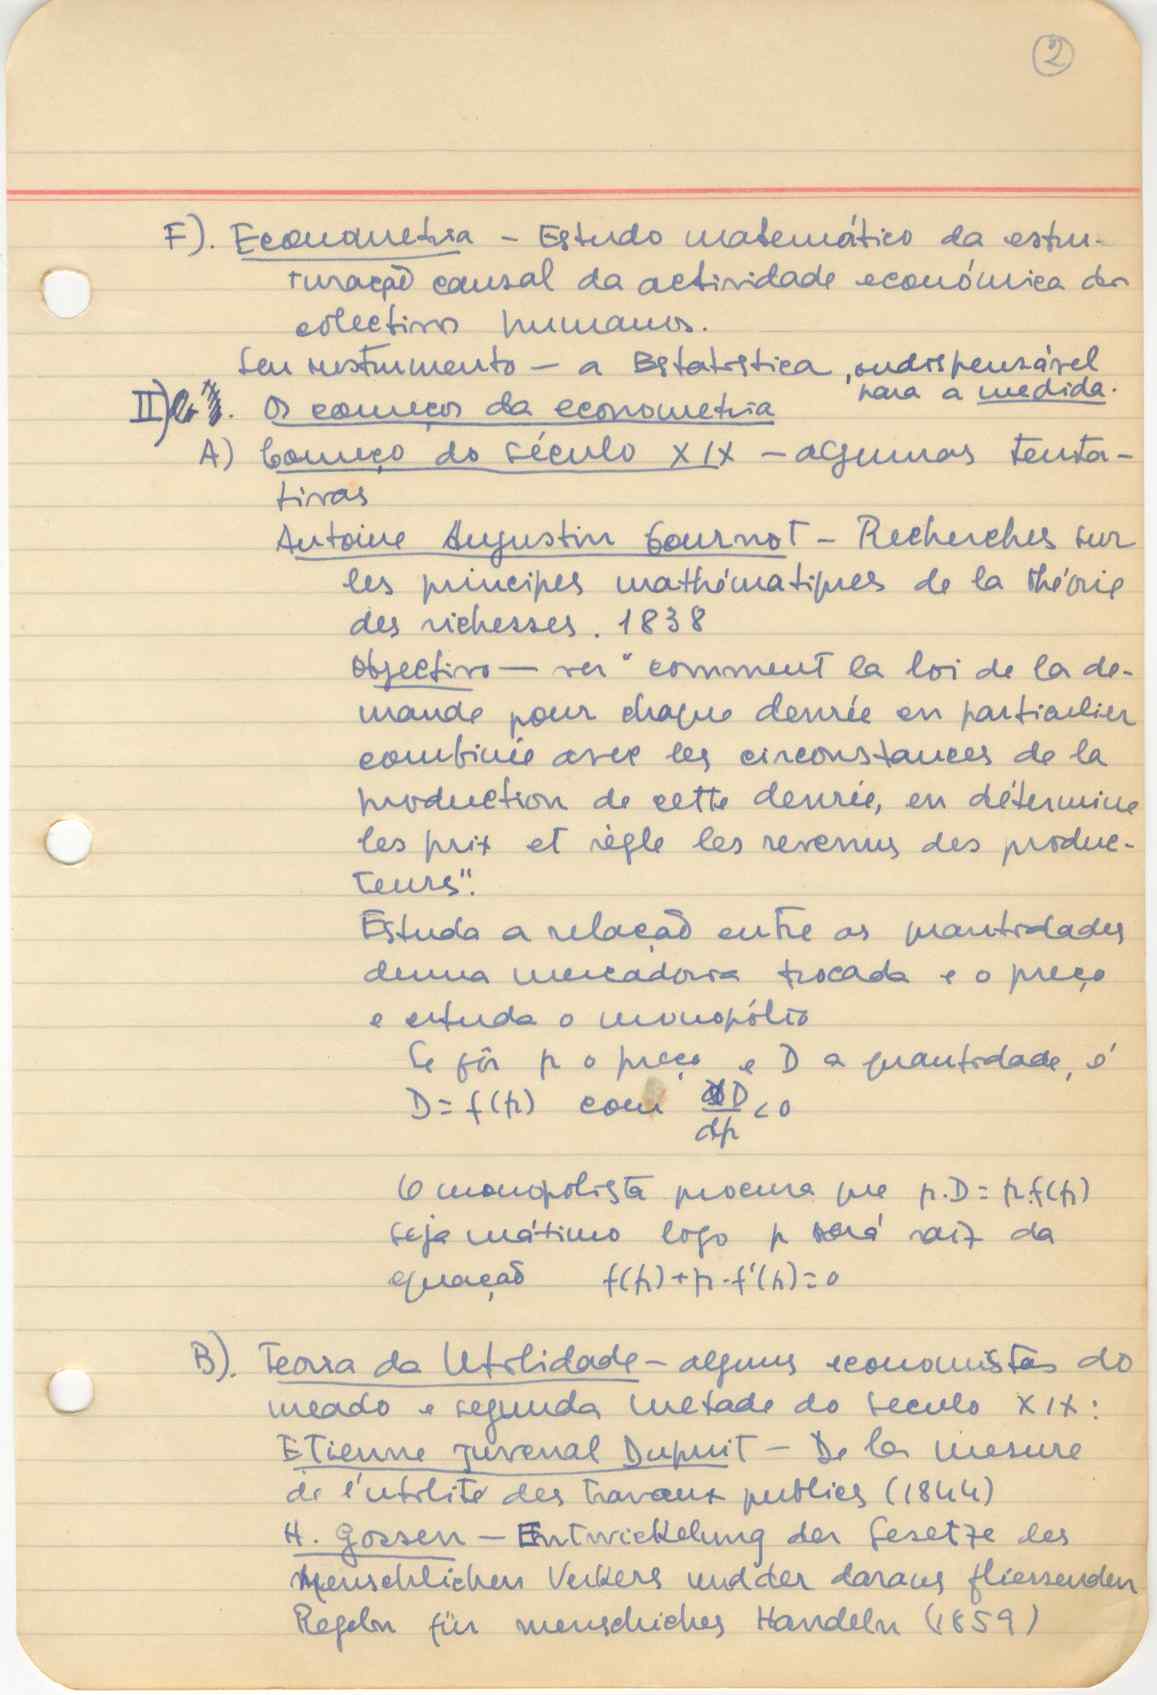 2
F). Econometria - Estudo matemático da estru-
turação causal da actividade económica dos
colectivos humanos.
Seu instrumento - a Estatística, indispensável
para a medida.
II) . Os começos da econometria
A) Começo do século XIX - algumas tenta-
tivas
Antoine Augustin Cournot - Recherches sur
les principes mathématiques de la théorie
des richesses. 1838
Objectivo - ver "comment la loi de la de-
mande pour chaque denrée en particulier
combinée avec les circonstances de la
production de cette denrée, en détermine
les prix et règle les revenus des produc-
teurs".
Estuda a relação entre as quantidades
duma mercadoria trocada e o preço
e estuda o monopólio
Se fôr p o preço e D a quantidade, é
D = f(p) com dD/dp < 0
O monopolista procura que p.D = p.f(p)
seja máximo logo p será raiz da
equação f(p) + p.f'(p) = 0
B). Teoria da Utilidade - alguns economistas do
meado e segunda metade do século XIX:
Etienne Juvenal Dupuit - De la mesure
de l'utilité des travaux publics (1844)
H. Gossen - Entwickelung der Gesetze des
menschlichen Verkers und der daraus fliessenden
Regeln für menschliches Handeln (1859)